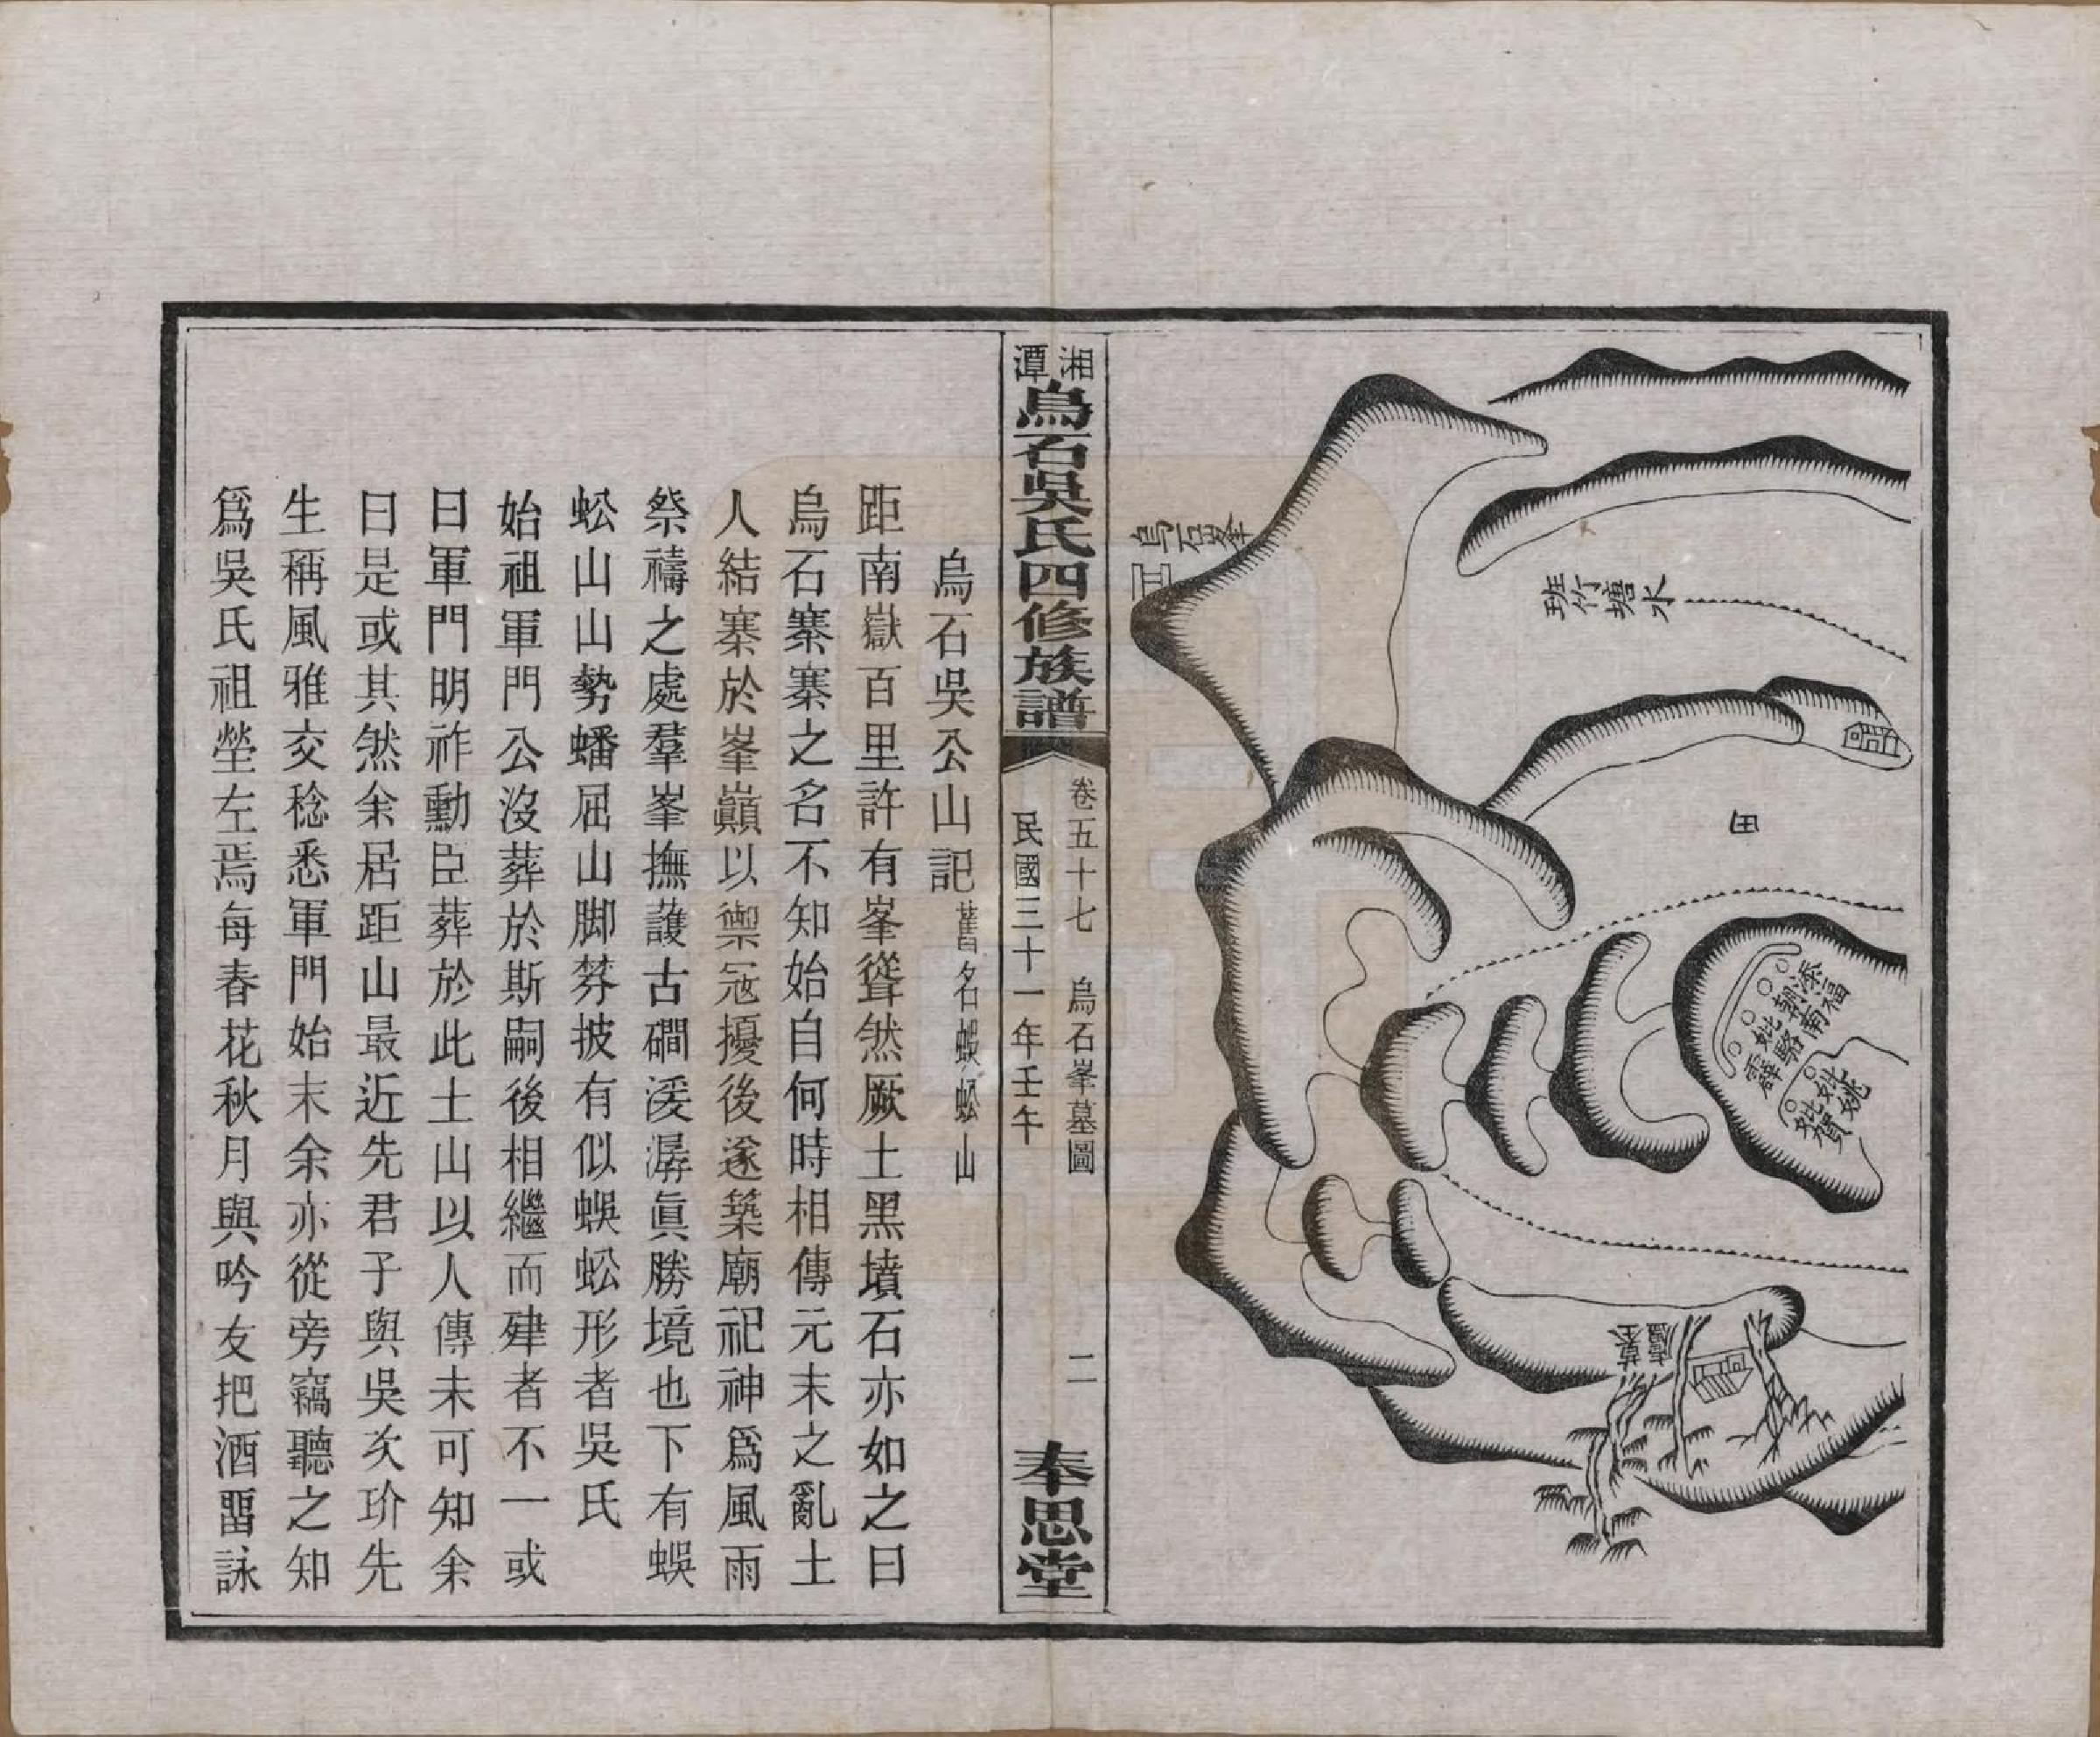 烏石峯
班竹塘水
田
添福
朝南
妣駱
霹
姚
妣賀
廬墓
湘潭烏石吳氏四修族譜
卷五十七 烏石峯墓圖 二
民國三十一年壬午
奉思堂
烏石吳公山記 舊名蜈蚣山
距南嶽百里許有峯聳然厥土黑墳石亦如之曰
烏石寨寨之名不知始自何時相傳元末之亂土
人結寨於峯巔以禦冦擾後遂築廟祀神爲風雨
祭禱之處羣峯撫護古磵溪潺眞勝境也下有蜈
蚣山山勢蟠屈山脚棼披有似蜈蚣形者吳氏
始祖軍門公沒葬於斯嗣後相繼而肂者不一或
曰軍門明祚勳臣葬於此土山以人傳未可知余
曰是或其然余居距山最近先君子與吳次玠先
生稱風雅交稔悉軍門始末余亦從旁竊聽之知
爲吳氏祖塋左焉每春花秋月與吟友把酒畱詠